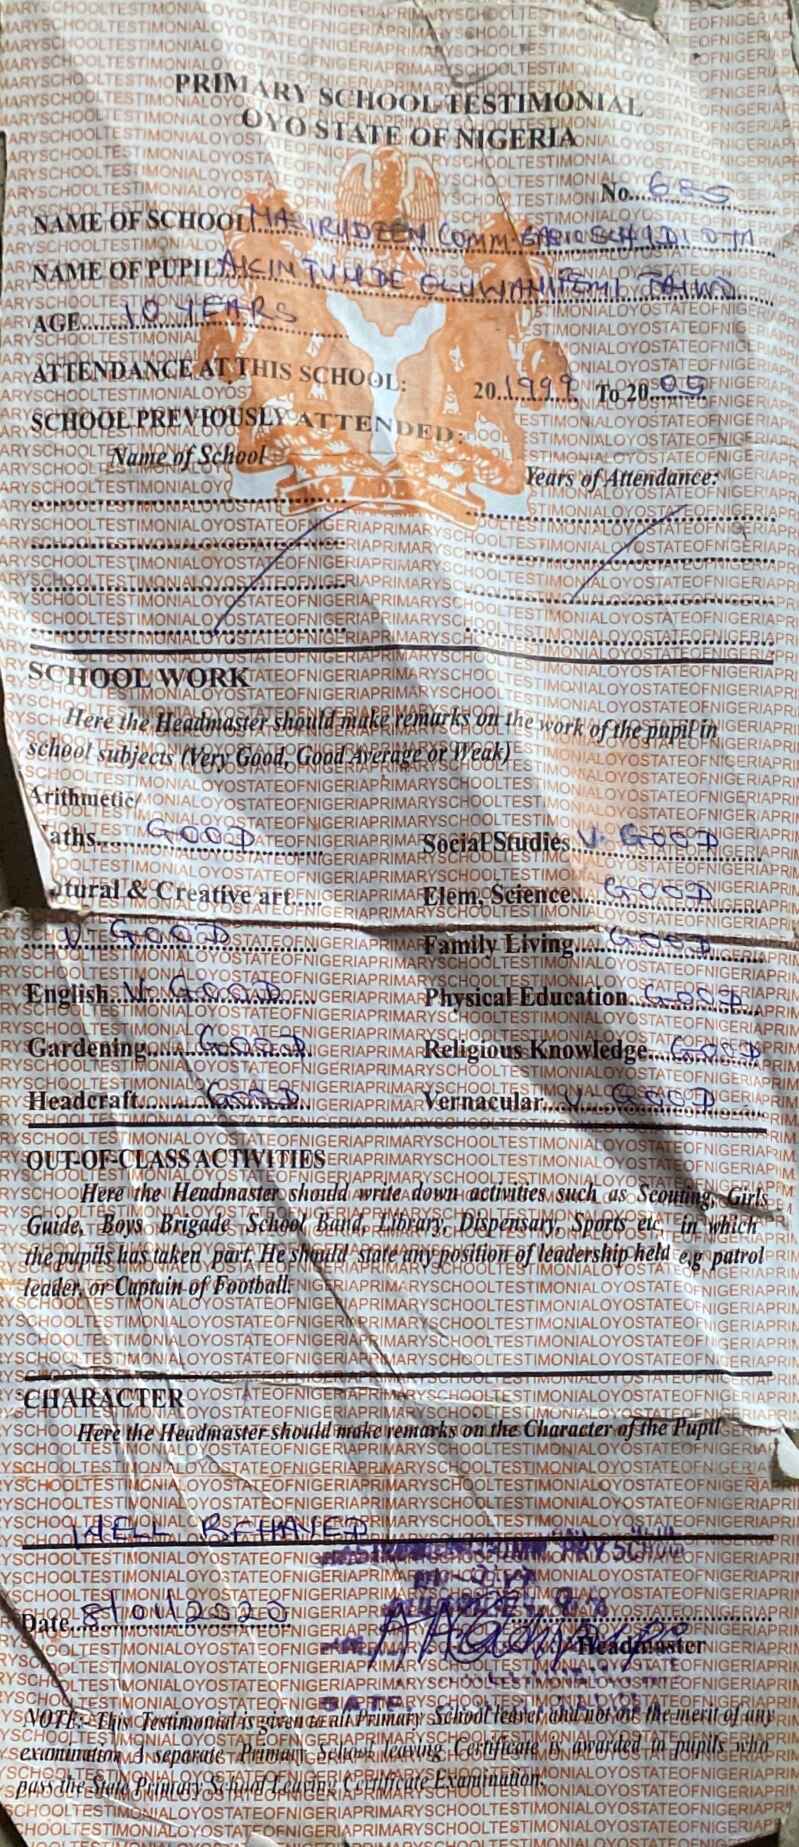 PRIMARY SCHOOL TESTIMONIAL
OYO STATE OF NIGERIA
No. 685
NAME OF SCHOOL NASIRUDEEN COMM. BASIC SCH IDI OTA
NAME OF PUPIL AKINTUNDE OLUWANIFEMI TAIWO
AGE 10 YEARS
ATTENDANCE AT THIS SCHOOL: 20..1999 To 20..05
SCHOOL PREVIOUSLY ATTENDED:
Name of School
Years of Attendance:
SCHOOL WORK
Here the Headmaster should make remarks on the work of the pupil in
school subjects (Very Good, Good Average or Weak)
Arithmetic/
aths GOOD
Social Studies V. GOOD
tural & Creative art
Elem, Science GOOD
V. GOOD
Family Living GOOD
English V. GOOD
Physical Education GOOD
Gardening GOOD
Religious Knowledge GOOD
Headcraft GOOD
Vernacular V. GOOD
OUT-OF-CLASS ACTIVITIES
Here the Headmaster should write down activities such as Scouting, Girls
Guide, Boys Brigade School Band, Library, Dispensary, Sports etc, in which
the pupils has taken part. He should state any position of leadership held e,g patrol
leader, or Captain of Football.
CHARACTER
Here the Headmaster should make remarks on the Character of the Pupil
WELL BEHAVED
PRY SCHOOL
Date 8/01/2020
Headmaster
DATE
NOTE:- This Testimonial is given to all Primary School leaver and not on the merit of any
examination A separate Primary School leaving Certificate is awarded to pupils who
pass the State Primary School Leaving Certificate Examination.